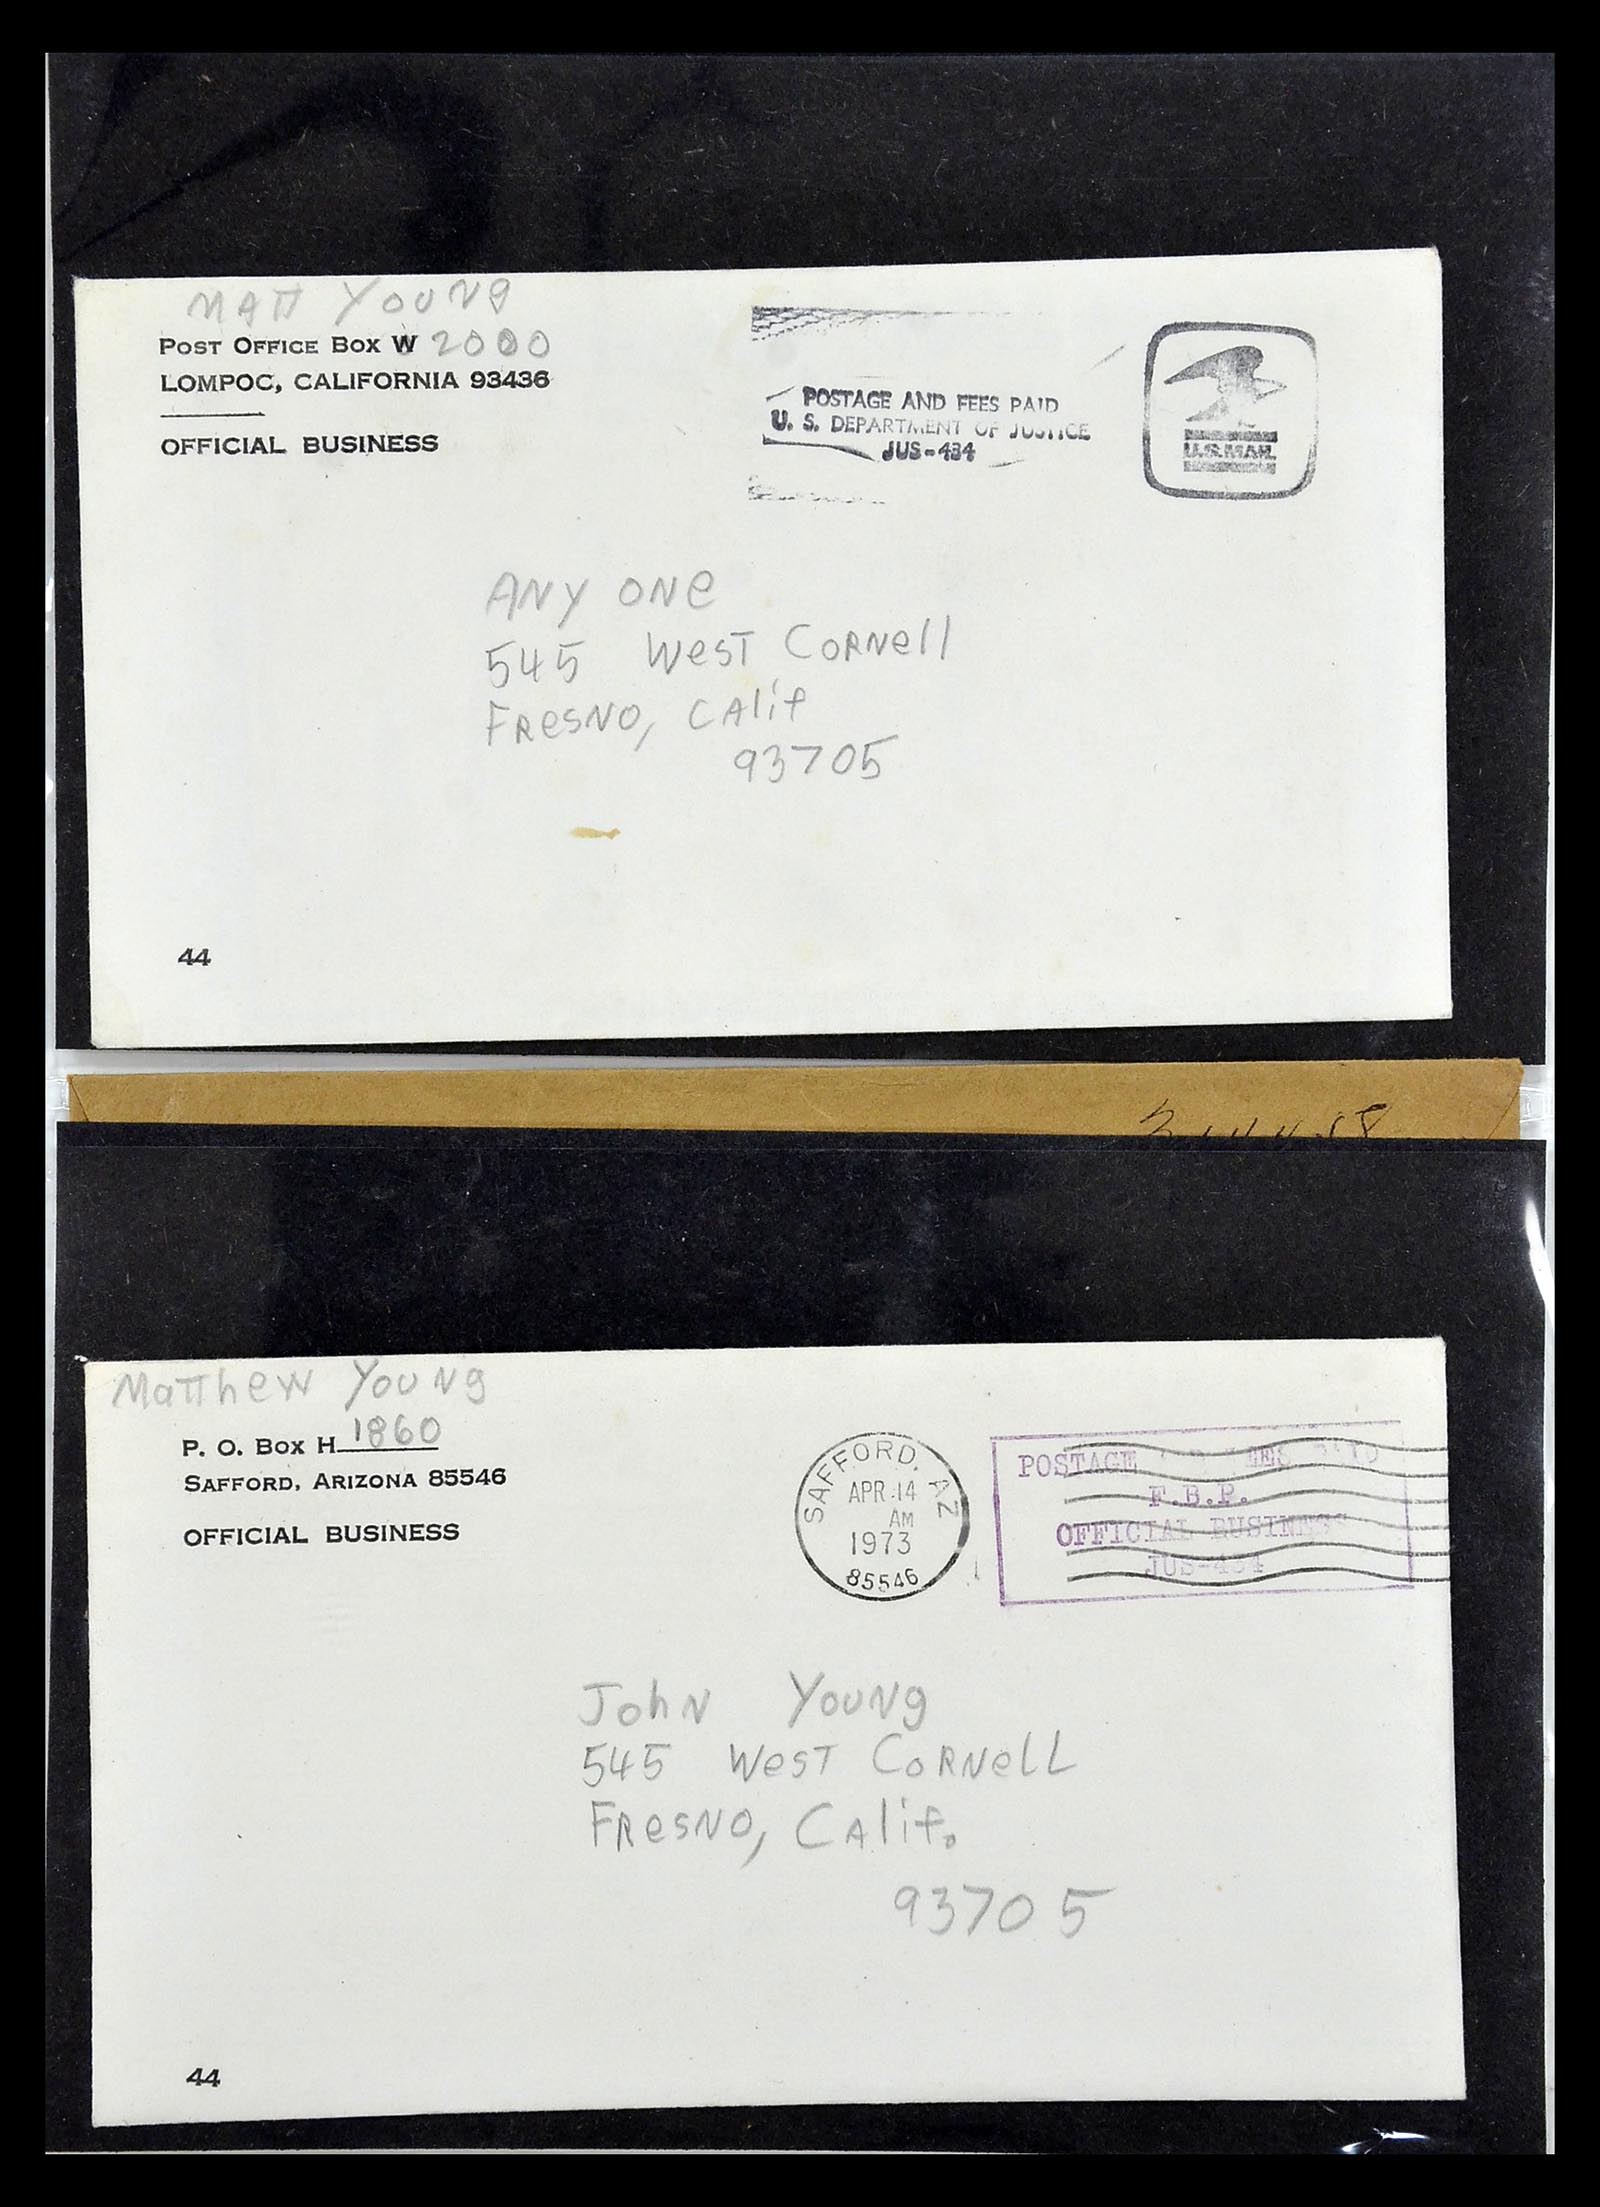 MATT YOUNG
POST OFFICE BOX W 2000
LOMPOC, CALIFORNIA 93436
OFFICIAL BUSINESS
POSTAGE AND FEES PAID
U. S. DEPARTMENT OF JUSTICE
JUS-434
U.S.MAIL
ANY ONe
545 West CORNell
FResNO, CAlif
93705
44
Matthew Young
P. O. BOX H 1860
SAFFORD, ARIZONA 85546
OFFICIAL BUSINESS
SAFFORD, AZ
APR 14
AM
1973
85546
POSTAGE FEES PAID
F.B.P.
OFFICIAL BUSINESS
JUS-434
JohN YouNg
545 West CORNell
FResNO, CAlif.
93705
44